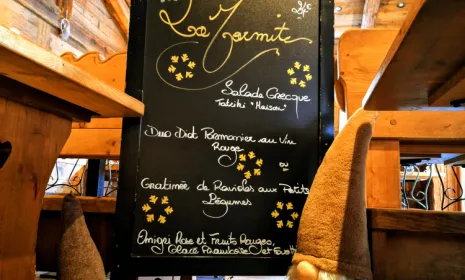 La Marmite
Salade Grecque
Tatziki "Maison"
Duo Diot Pormonier au Vin
Rouge
Gratinée de Ravioles aux Petits
Légumes
et Fruits Rouges,
Glace Framboise